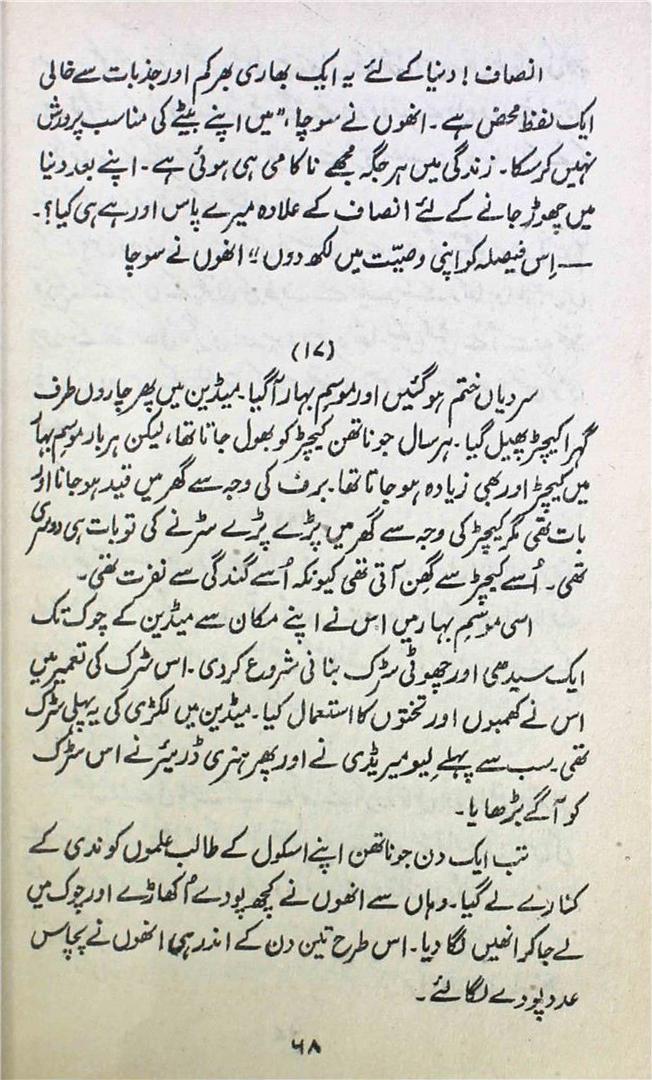 انصاف! دنیا کے لئے یہ ایک بھاری بھرکم اور جذبات سے خالی
ایک لفظ محض ہے۔ انھوں نے سوچا، "میں اپنے بیٹے کی مناسب پرورش
نہیں کرسکا۔ زندگی میں ہر جگہ مجھے ناکامی ہی ہوئی ہے۔ اپنے بعد دنیا
میں چھوڑ جانے کے لئے انصاف کے علاوہ میرے پاس اور ہے ہی کیا؟۔
— اِس فیصلہ کو اپنی وصیّت میں لکھ دوں" انھوں نے سوچا
(۱۷)
سردیاں ختم ہوگئیں اور موسمِ بہار آگیا۔ میڈین میں پھر چاروں طرف
گہرا کیچڑ پھیل گیا۔ ہر سال جوناتھن کیچڑ کو بھول جاتا تھا، لیکن ہر بار موسمِ بہار
میں کیچڑ اور بھی زیادہ ہوجاتا تھا۔ برف کی وجہ سے گھر میں قید ہوجانا اور
بات تھی مگر کیچڑ کی وجہ سے گھر میں پڑے پڑے سڑنے کی تو بات ہی دوسری
تھی۔ اُسے کیچڑ سے گھِن آتی تھی کیونکہ اُسے گندگی سے نفرت تھی۔
اسی موسمِ بہار میں اس نے اپنے مکان سے میڈین کے چوک تک
ایک سیدھی اور چھوٹی سڑک بنانی شروع کردی۔ اس سڑک کی تعمیر میں
اس نے کھمبوں اور تختوں کا استعمال کیا۔ میڈین میں لکڑی کی یہ پہلی سڑک
تھی۔ سب سے پہلے لیو میریڈی نے اور پھر ہنری ڈریئر نے اس سڑک
کو آگے بڑھایا۔
تب ایک دن جوناتھن اپنے اسکول کے طالب علموں کو ندی کے
کنارے لے گیا۔ وہاں سے انھوں نے کچھ پودے اُکھاڑے اور چوک میں
لے جاکر انھیں لگا دیا۔ اس طرح تین دن کے اندر ہی انھوں نے پچاس
عدد پودے لگالئے۔
۶۸